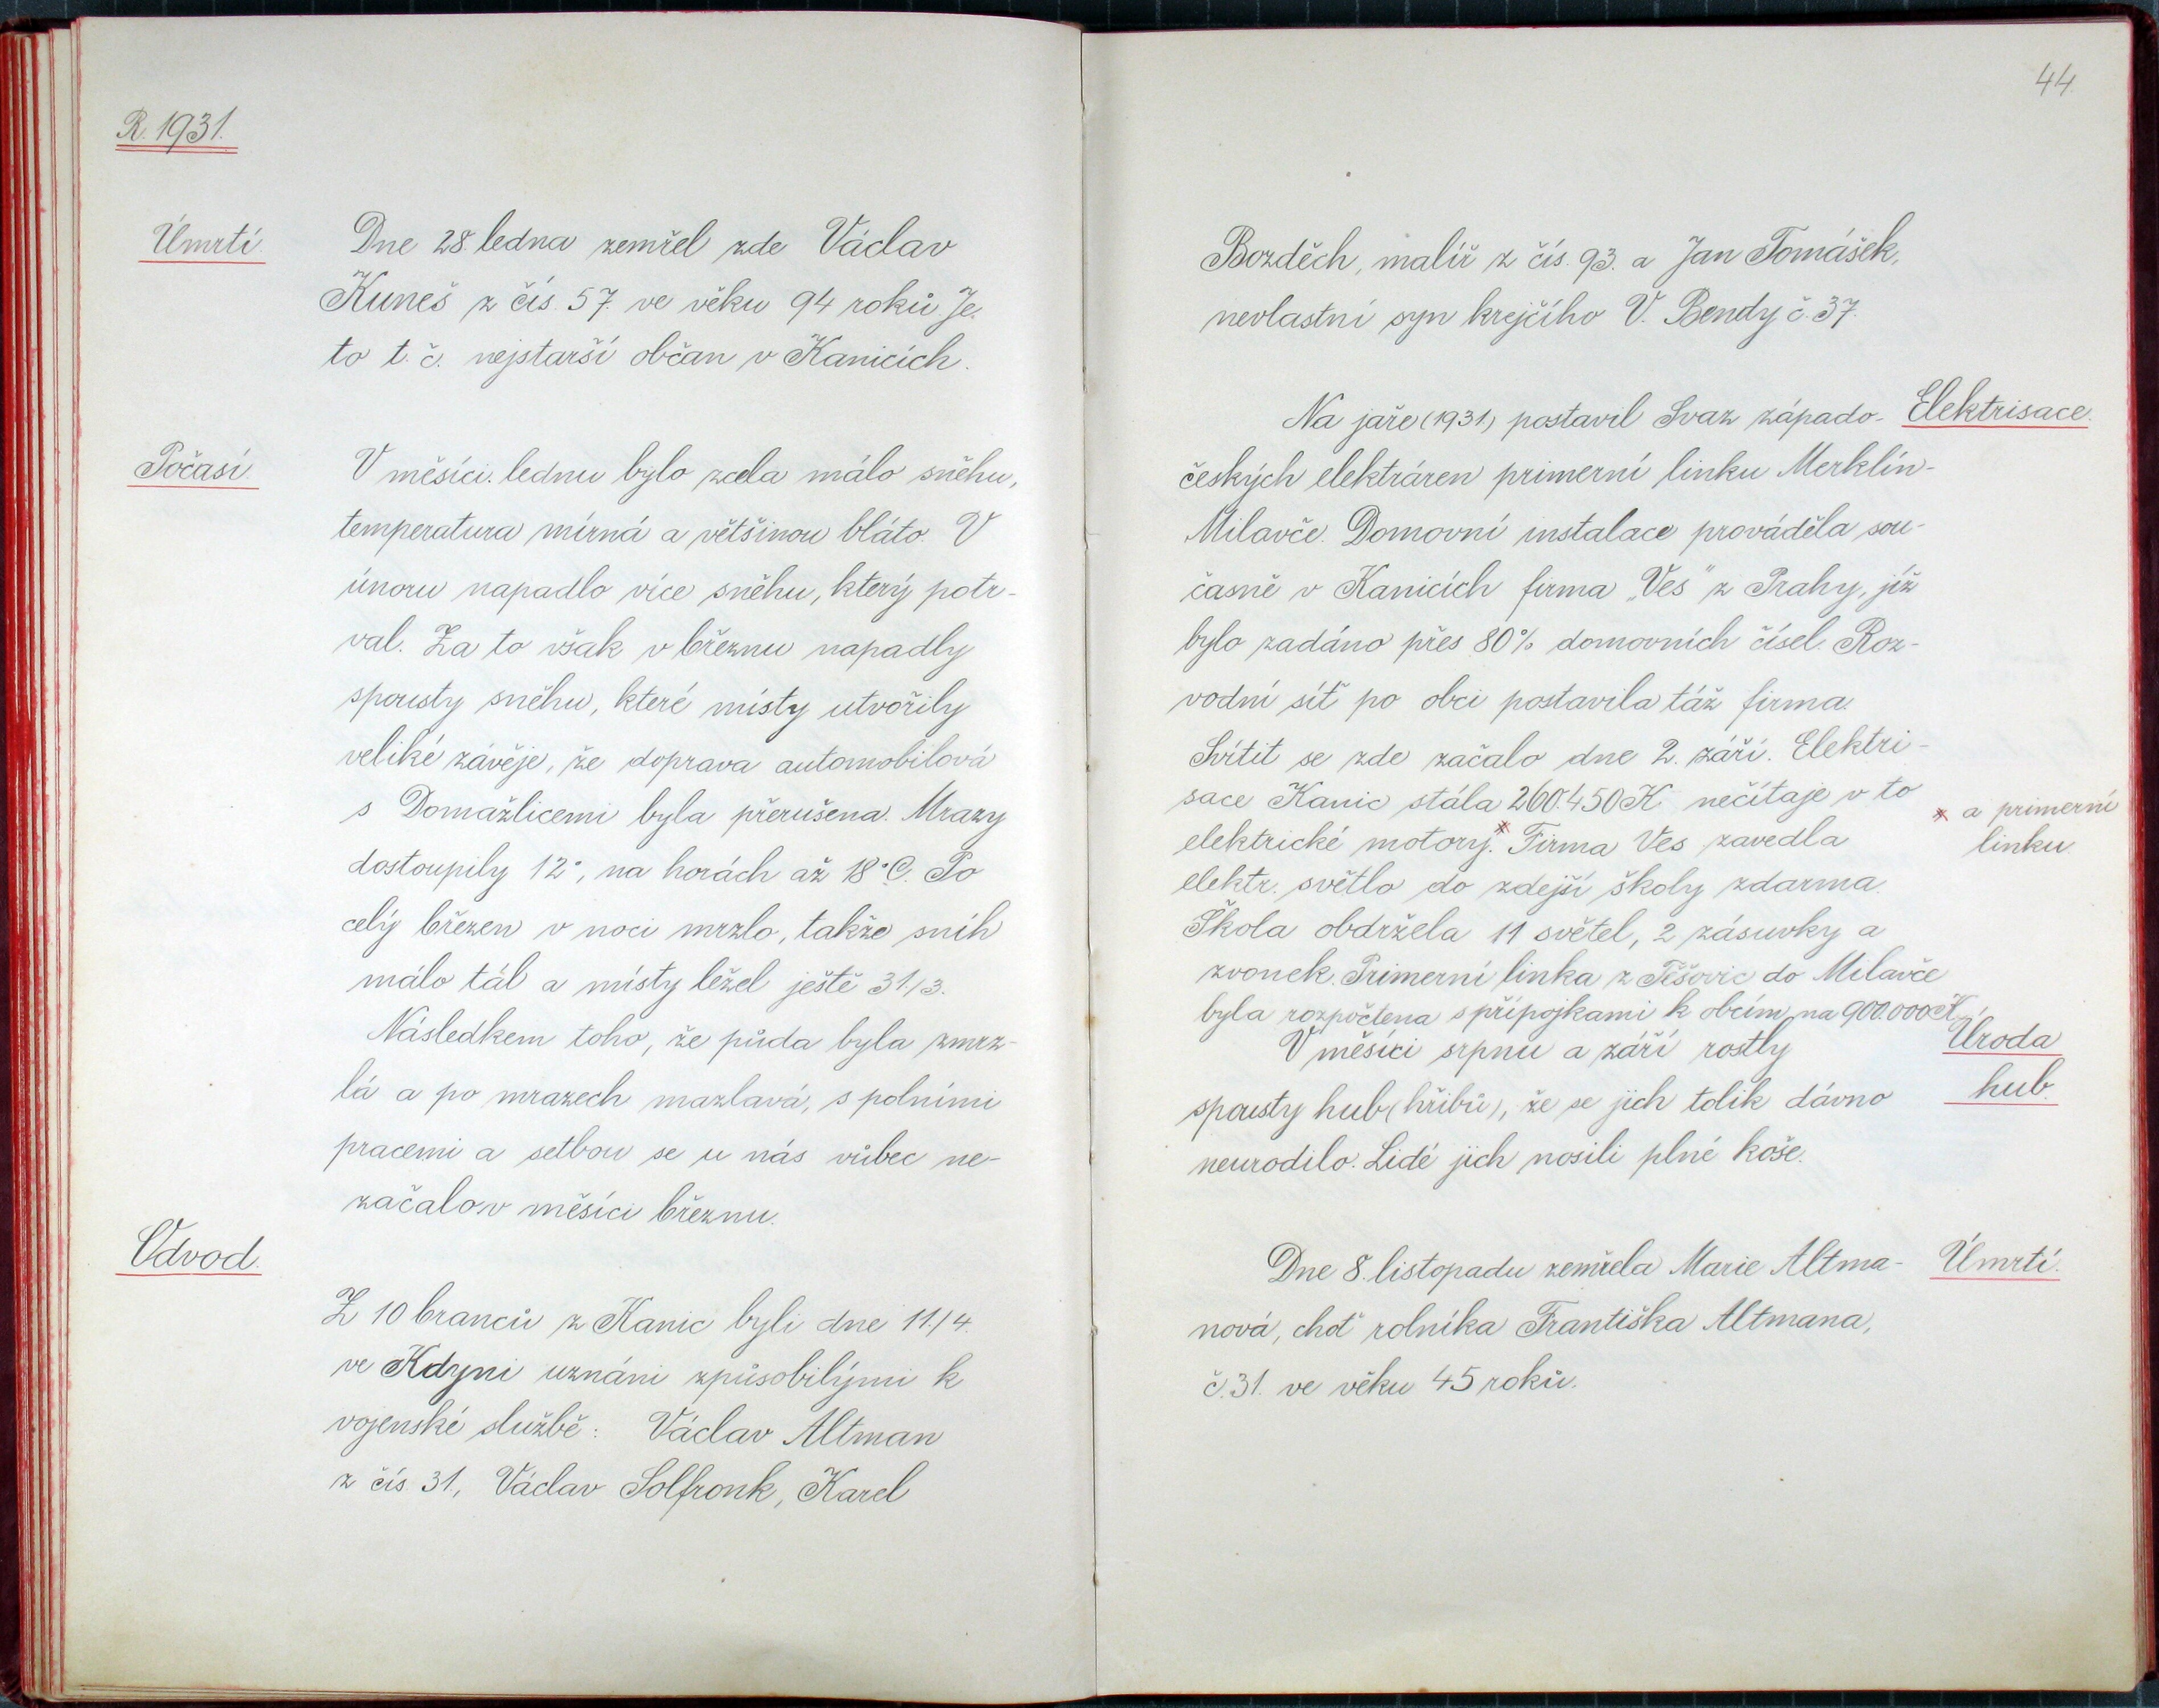 R. 1931.
Úmrtí.
Dne 28. ledna zemřel zde Václav
Kuneš z čís. 57. ve věku 94 roků. Je
to t. č. nejstarší občan v Kanicích.
Počasí.
V měsíci lednu bylo zcela málo sněhu,
temperatura mírná a většinou bláto. V
únoru napadlo více sněhu, který potr-
val. Za to však v březnu napadly
spousty sněhu, které místy utvořily
veliké závěje, že doprava automobilová
s Domažlicemi byla přerušena. Mrazy
dostoupily 12°, na horách až 18°C. Po
celý březen v noci mrzlo, takže sníh
málo tál a místy ležel ještě 31./3.
Následkem toho, že půda byla zmrz-
lá a po mrazech mazlavá, s polními
pracemi a setbou se u nás vůbec ne-
začalo v měsíci březnu.
Odvod.
Z 10 branců z Kanic byli dne 11./4.
ve Kdyni uznáni způsobilými k
vojenské službě: Václav Altman
z čís. 31., Václav Solfronk, Karel
44.
Bozděch, malíř z čís. 93. a Jan Tomášek,
nevlastní syn krejčího V. Bendy č. 37.
Elektrisace.
Na jaře (1931) postavil Svaz západo-
českých elektráren primerní linku Merklín-
Milavče. Domovní instalace prováděla sou-
časně v Kanicích firma „Ves" z Prahy, jíž
bylo zadáno přes 80% domovních čísel. Roz-
vodní síť po obci postavila táž firma.
Svítit se zde začalo dne 2. září. Elektri-
sace Kanic stála 260.450 K nečítaje v to
elektrické motory.* Firma Ves zavedla
* a primerní
linku.
elektr. světlo do zdejší školy zdarma.
Škola obdržela 11 světel, 2 zásuvky a
zvonek. Primerní linka z Těšovic do Milavče
byla rozpočtena s přípojkami k obcím na 900.000 Kč.
Úroda
hub.
V měsíci srpnu a září rostly
spousty hub (hřibů), že se jich tolik dávno
neurodilo. Lidé jich nosili plné koše.
Úmrtí.
Dne 8. listopadu zemřela Marie Altma-
nová, choť rolníka Františka Altmana,
č. 31. ve věku 45 roků.